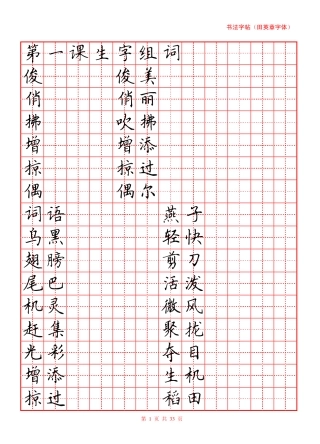 书法字帖（田英章字体）
第一课生字组词
俊 俊美
俏 俏丽
拂 吹拂
增 增添
掠 掠过
偶 偶尔
词语 燕子
乌黑 轻快
翅膀 剪刀
尾巴 活泼
机灵 微风
赶集 聚拢
光彩 夺目
增添 生机
掠过 稻田
第 1 页 共 35 页